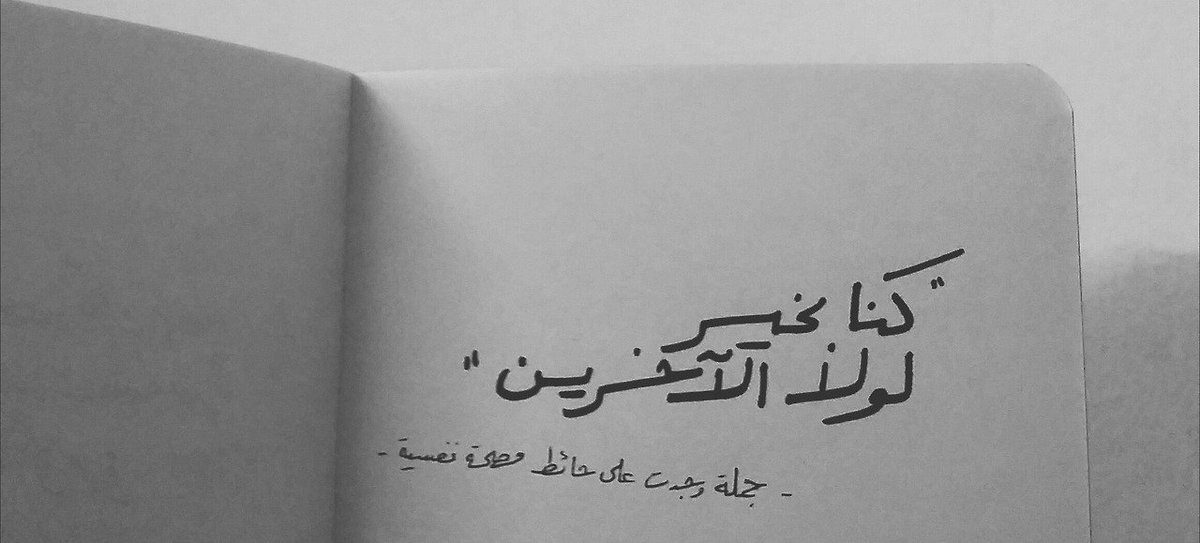 "كنا بخير
لولا الآخرين"
- جملة وجدت على حائط مصحة نفسية -